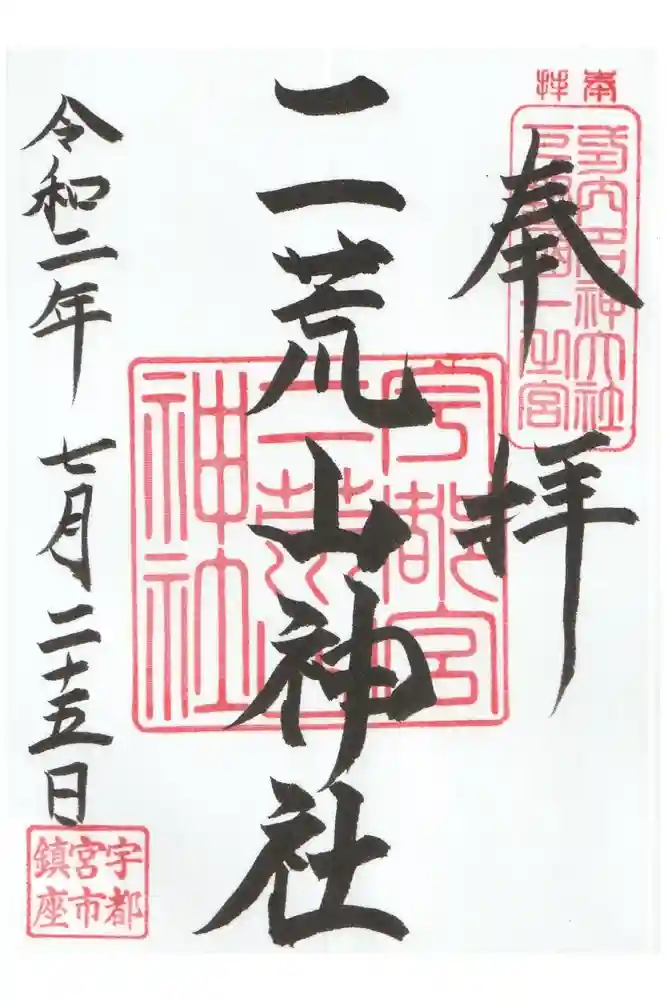 奉拝
式内名神大社
下野國一之宮
奉拝
二荒山神社
宇都宮
二荒山
神社
令和二年 七月二十五日
宇都
宮市
鎮座